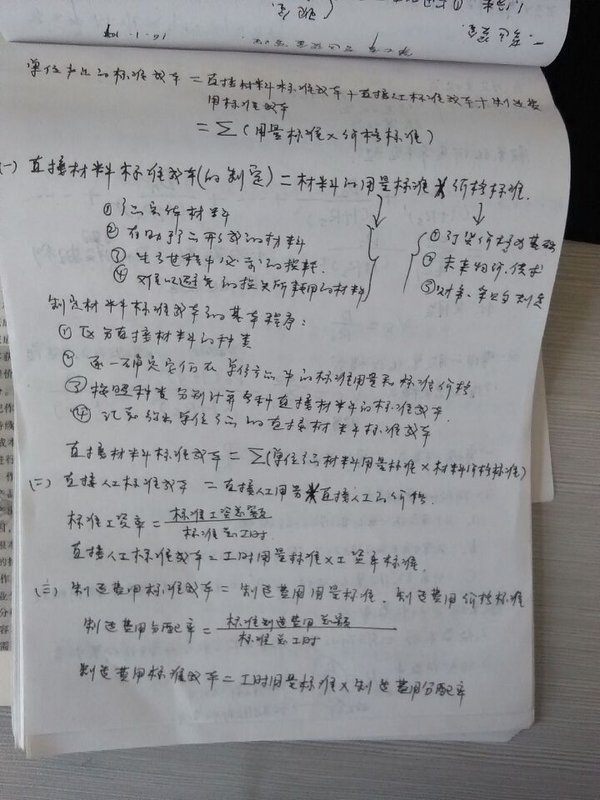 单位产品的标准成本 = 直接材料标准成本 + 直接人工标准成本 + 制造费
用标准成本
= ∑(用量标准×价格标准)
(一) 直接材料标准成本(的制定) = 材料的用量标准 × 价格标准.
①
材料
② 有助于
形成的材料
③ 生产过程中必要的损耗
④ 难以避免的损失所耗用的材料
① 订货价格为基础
② 未来物价、供求
③
制定材料标准成本的基本程序:
① 区分直接材料的种类
② 逐一确定它们在单位
中的标准用量和标准价格
③ 按照种类分别计算各种直接材料的标准成本.
④ 汇总得出单位
的直接材料标准成本
直接材料标准成本 = ∑(单位
材料用量标准×材料价格标准)
(二) 直接人工标准成本 = 直接人工用量×直接人工的价格.
标准工资率 = 标准工资总额
标准总工时
直接人工标准成本 = 工时用量标准×工资率标准.
(三) 制造费用标准成本 = 制造费用用量标准 · 制造费用价格标准
制造费用分配率 = 标准制造费用总额
标准总工时
制造费用标准成本 = 工时用量标准×制造费用分配率